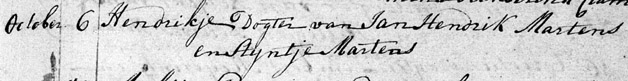 October 6 Hendrikje Dogter van Jan Hendrik Martens
en Styntje Martens